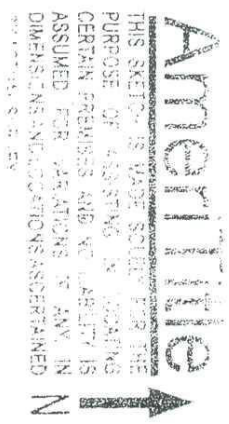 AmeriTitle
THIS SKETCH IS MADE SOLELY FOR THE
PURPOSE OF ASSISTING IN LOCATING
CERTAIN PREMISES AND NO LIABILITY IS
ASSUMED FOR VARIATIONS IF ANY IN
DIMENSIONS AND LOCATIONS ASCERTAINED
BY ACTUAL SURVEY
N